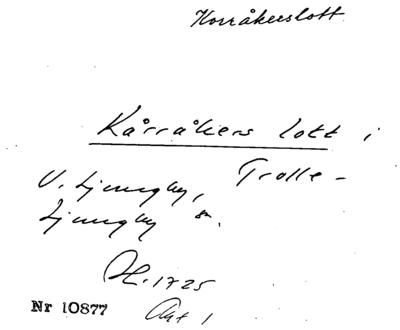 Korråkerslott
Kårråkers lott i
V. Ljungby, Trolle-
Ljungby sn.
H. 1725
Nr 10877 Akt 1